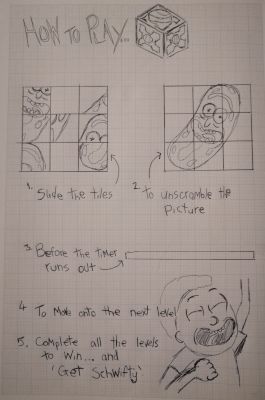 HOW TO PLAY...
1. Slide the tiles
2. To unscramble the
Picture
3. Before the timer
runs out
4 To Move onto the next level
5. Complete all the levels
to win... and
'Get Schwifty'